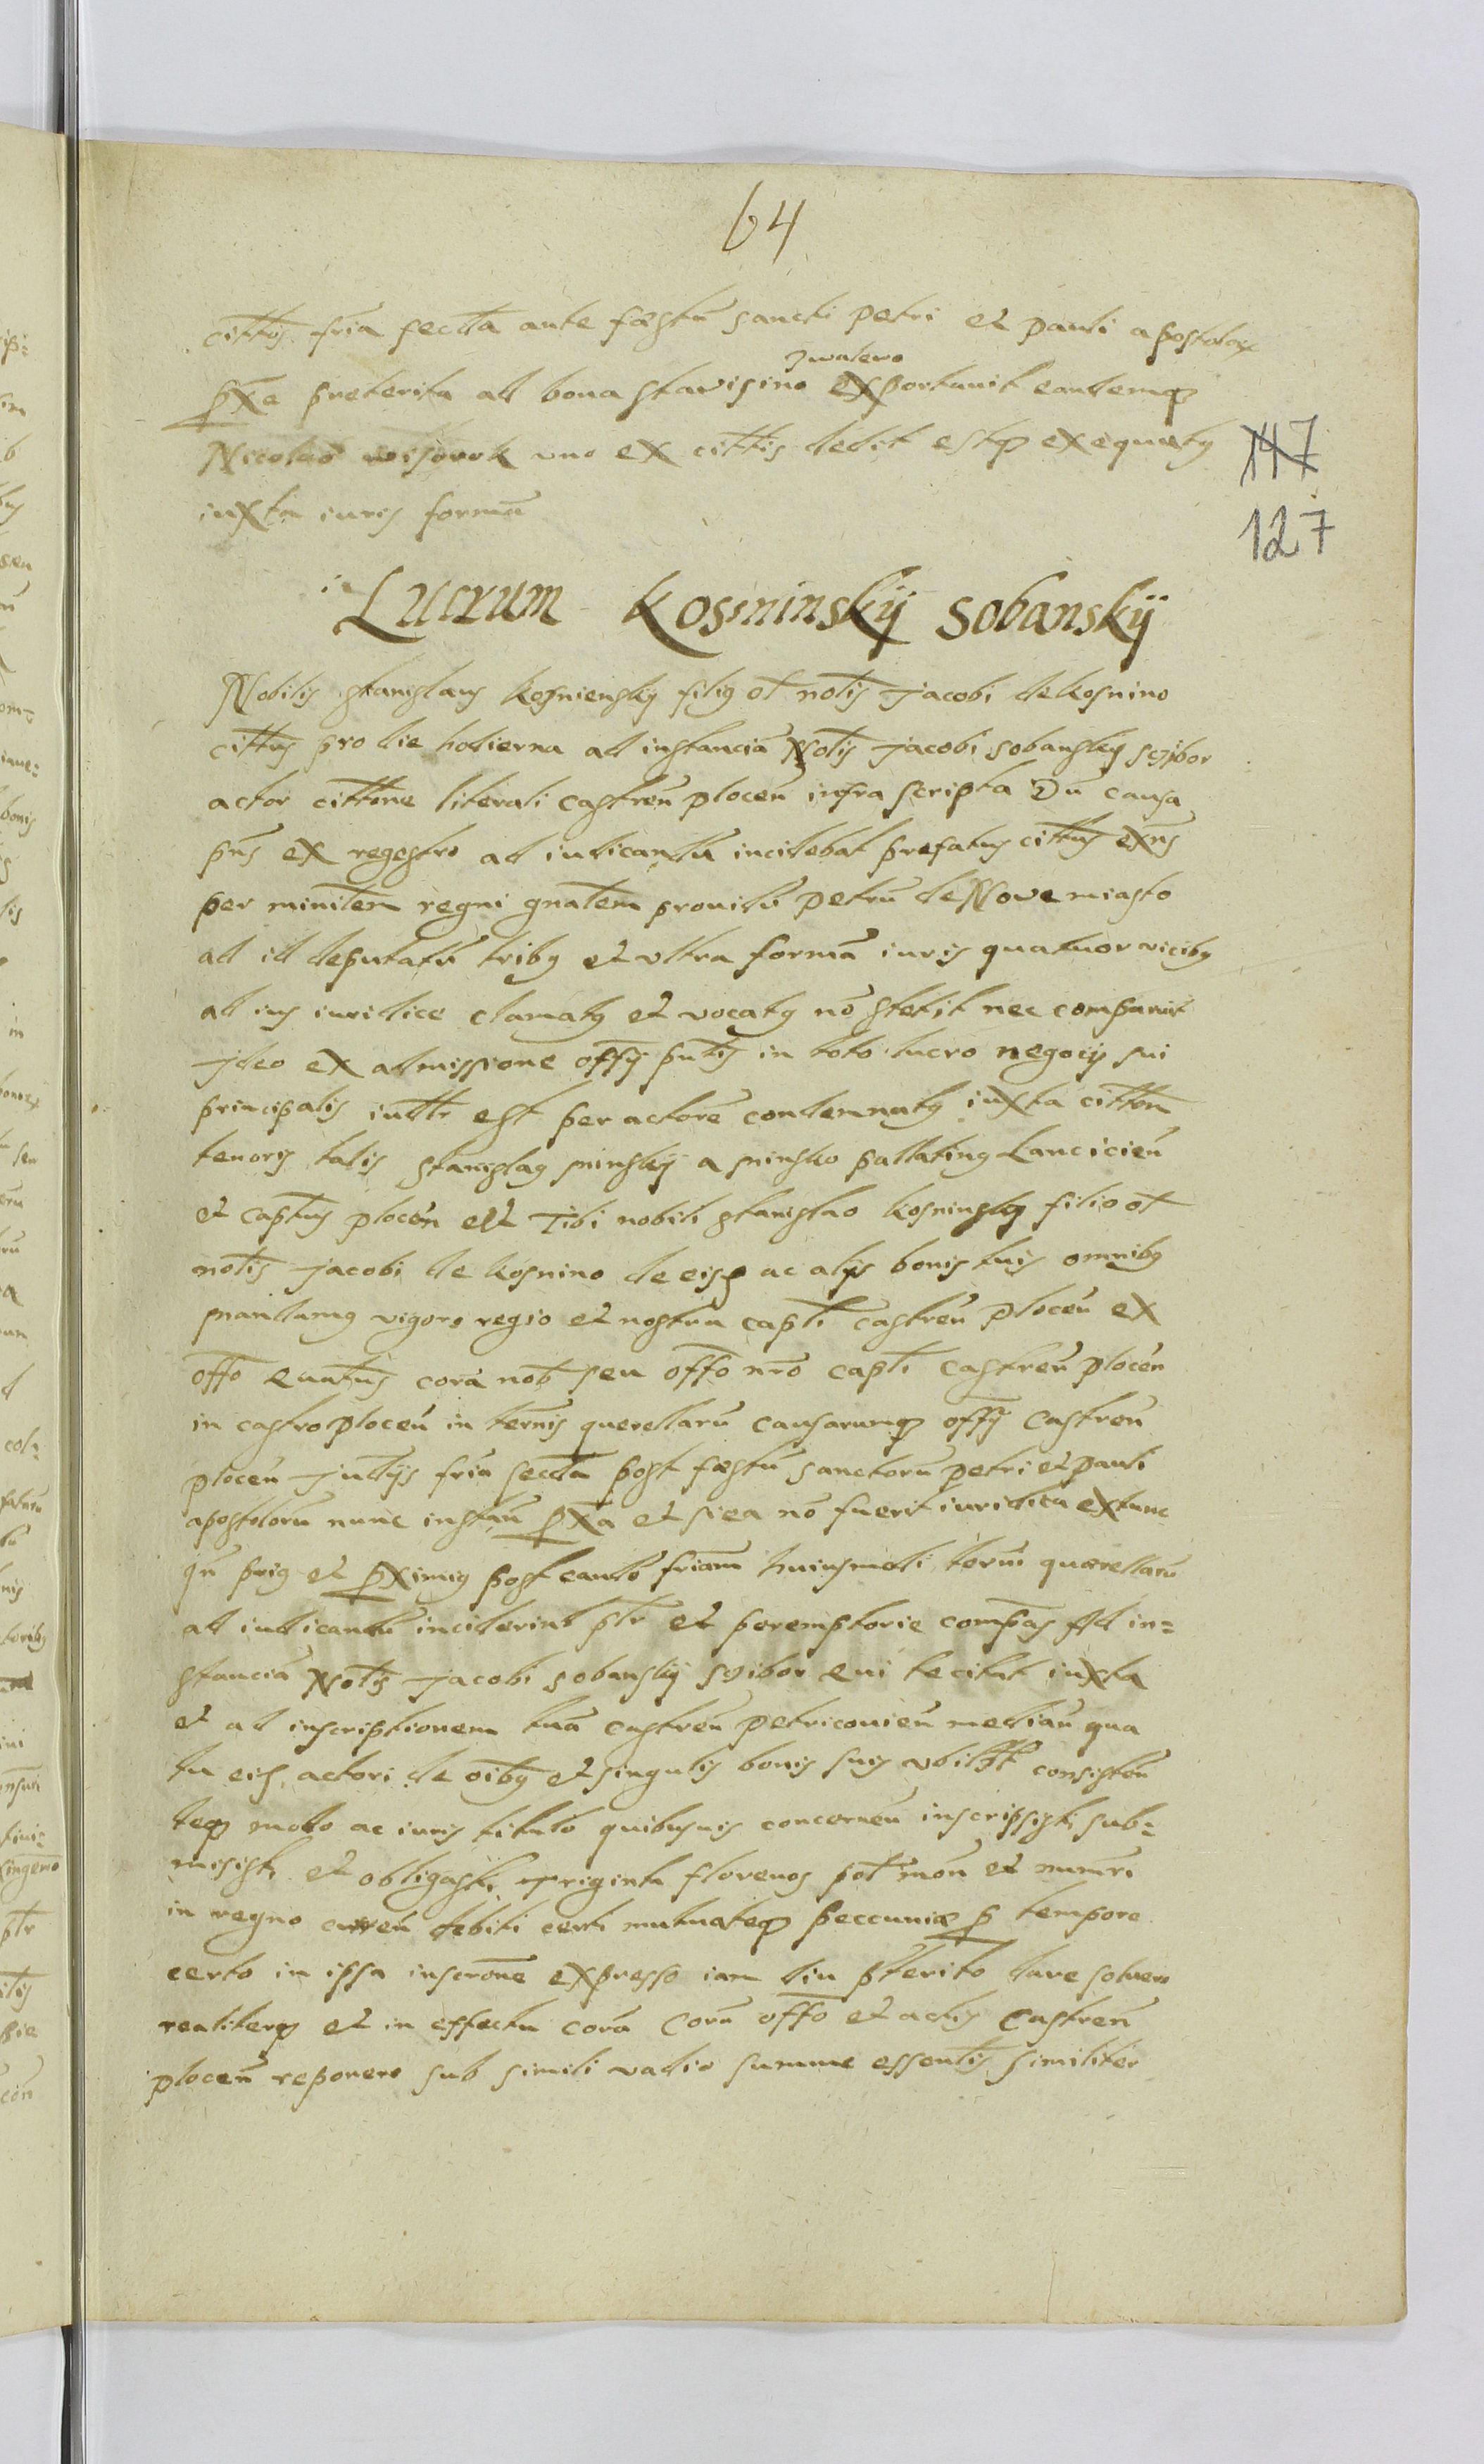 64
cittis fria secda ante festū sancti petri et pauli apostolor
Zwalewo
pxe preterita ad bona stawisino exportavit eandemq
Nicolao uno ex cittis dedit estq exequuty
iuxta iuris formā
147
127
Lucrum Kosninskÿ Sobanskÿ
Nobilis Stanislaus Kosnienskÿ filiy ol notlis Jacobi de Kosnino
cittus pro die hodierna ad instanciā Notlis Jacobi Sobanskÿ Scÿbor
actor cittone literali castren plocen infra scripta Dū causa
pns ex regestro ad iudicandū incidebat prefatus cittus exns
per ministem regni gnatem providū Petrū de Nove miasto
ad id deputatū triby et ultra formā iuris quatuor viciby
ad ius iuridice clamaty et vocaty nō stetit nec comparuit
Ideo ex admissione offÿ pntis in toto lucro negocÿ sui
principalis iudtr est per actorē condemnaty iuxta cittom
tenoris talis Stanislaÿ Minskÿ a Minsko pallatiny Lancicien
et captus plocen ect Tibi nobili Stanislao Kosninskÿ filio ol
notlis Jacobi de Kosnino de eisq ac alÿs bonis tuis omniby
mandamy vigore regio et nostra capli castren plocen ex
offo quatus corā nob seu offo nro capli castren plocen
in castro plocen in ternis querellarū causarumq offÿ castren
plocen Judÿs fria secda post festū sanctorū petri et pauli
apostolorū nunc instan pxa et si ea nō fuerit iuridica extunc
qn priy et proximiy post eandē friam huiusmodi termi quaerellarū
ad iudicandū inciderint pltr et peremptorie compas Ad in=
stanciā Notlis Jacobi Sobanskÿ Scÿbor qui te citat iuxta
et ad inscriptionem tuā castren petricovien median qua
tu eid actori de oiby et singulis bonis suis ubilbt consisten
teq modo ac iuris titulo quibusuis concernen inscripsisti sub=
misisti et obligasti Triginta florenos pol mon et numeri
in regno curren debiti certi mutuateq peccuniæ p tempore
certo in ipsa inscrone expresso iam diu pterito dare solvere
realiterq et in effectu corā corū offo et actis castren
plocen reponere sub simili vadio summe essentlis similiter